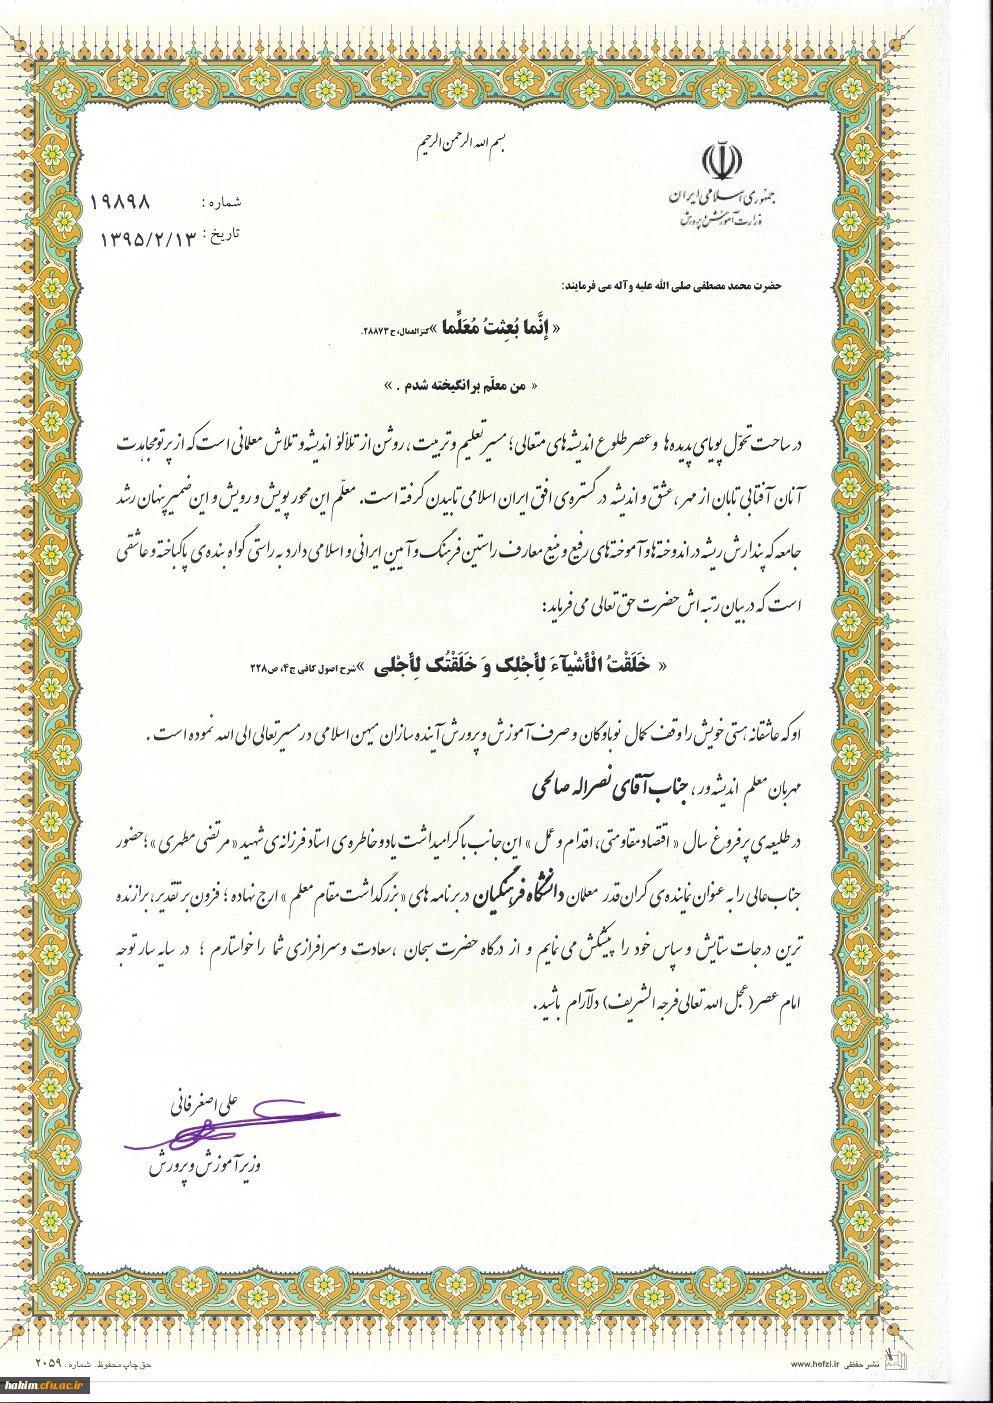 بسم الله الرحمن الرحیم
جمهوری اسلامی ایران
وزارت آموزش و پرورش
شماره : ۱۹۸۹۸
تاریخ : ۱۳۹۵/۲/۱۳
حضرت محمد مصطفی صلی الله علیه وآله می فرمایند:
« إنَّما بُعِثتُ مُعَلِّما »کنزالعمال، ح ۲۸۸۷۳.
« من معلّم برانگیخته شدم . »
در ساحت تحوّل پویای پدیده ها و عصر طلوع اندیشه های متعالی؛ مسیر تعلیم و تربیت، روشن از تلألؤ اندیشه و تلاش معلمانی است که از پرتو مجاهدت
آنان آفتابی تابان از مهر، عشق و اندیشه در گستره ی افق ایران اسلامی تابیدن گرفته است. معلّم این محور پویش و رویش و این ضمیر پنهان رشد
جامعه که پندارش ریشه در اندوخته ها و آموخته های رفیع و منیع معارف راستین فرهنگ و آیین ایرانی و اسلامی دارد به راستی گواه بنده ی پاکباخته و عاشقی
است که در بیان رتبه اش حضرت حق تعالی می فرماید:
« خَلَقْتُ الْأشْیآءَ لِأجْلِک وَ خَلَقْتُک لِأجْلی »شرح اصول کافی ج۴، ص۲۲۸
او که عاشقانه هستی خویش را وقف کمال نوباوگان و صرف آموزش و پرورش آینده سازان میهن اسلامی در مسیر تعالی الی الله نموده است .
مهربان معلم اندیشه ور ، جناب آقای نصراله صالحی
در طلیعه ی پرفروغ سال « اقتصاد مقاومتی، اقدام و عمل » این جانب با گرامیداشت یاد و خاطره ی استاد فرزانه ی شهید « مرتضی مطهری »؛ حضور
جناب عالی را به عنوان نماینده ی گران قدر معلمان دانشگاه فرهنگیان در برنامه های « بزرگداشت مقام معلم » ارج نهاده ؛ فزون بر تقدیر، برازنده
ترین درجات ستایش و سپاس خود را پیشکش می نمایم و از درگاه حضرت سبحان ،سعادت و سرافرازی شما را خواستارم ؛ در سایه سار توجه
امام عصر(عجل الله تعالی فرجه الشریف) دلآرام باشید .
علی اصغر فانی
وزیر آموزش و پرورش
نشر حفظی www.hefzi.ir
حق چاپ محفوظ. شماره : ۲۰۵۹
hakim.cfu.ac.ir